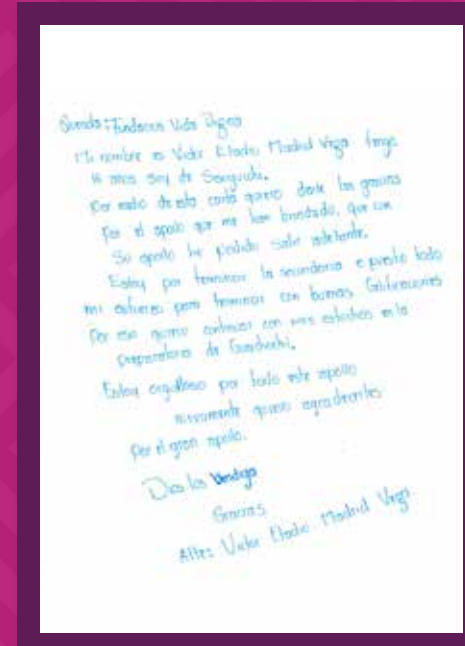 Querida: Fundacion Vida Digna
Mi nombre es Victor Eladio Madrid Vega tengo
años soy de Soaguichi.
Por medio de esta carta quiero darle las gracias
Por el apollo que me han brindado, que con
Su apollo he podido salir adelante.
Estoy por terminar la secundaria e puesto todo
mi esfuerzo para terminar con buenas Calificaciones
Por eso quiero continuar con mis estudios en la
preparatoria de Guachochi.
Estoy orgulloso por todo este apollo
nuevamente quiero agradecerles
Por el gran apollo.
Dios los Vendiga
Gracias
Atte: Victor Eladio Madrid Vega